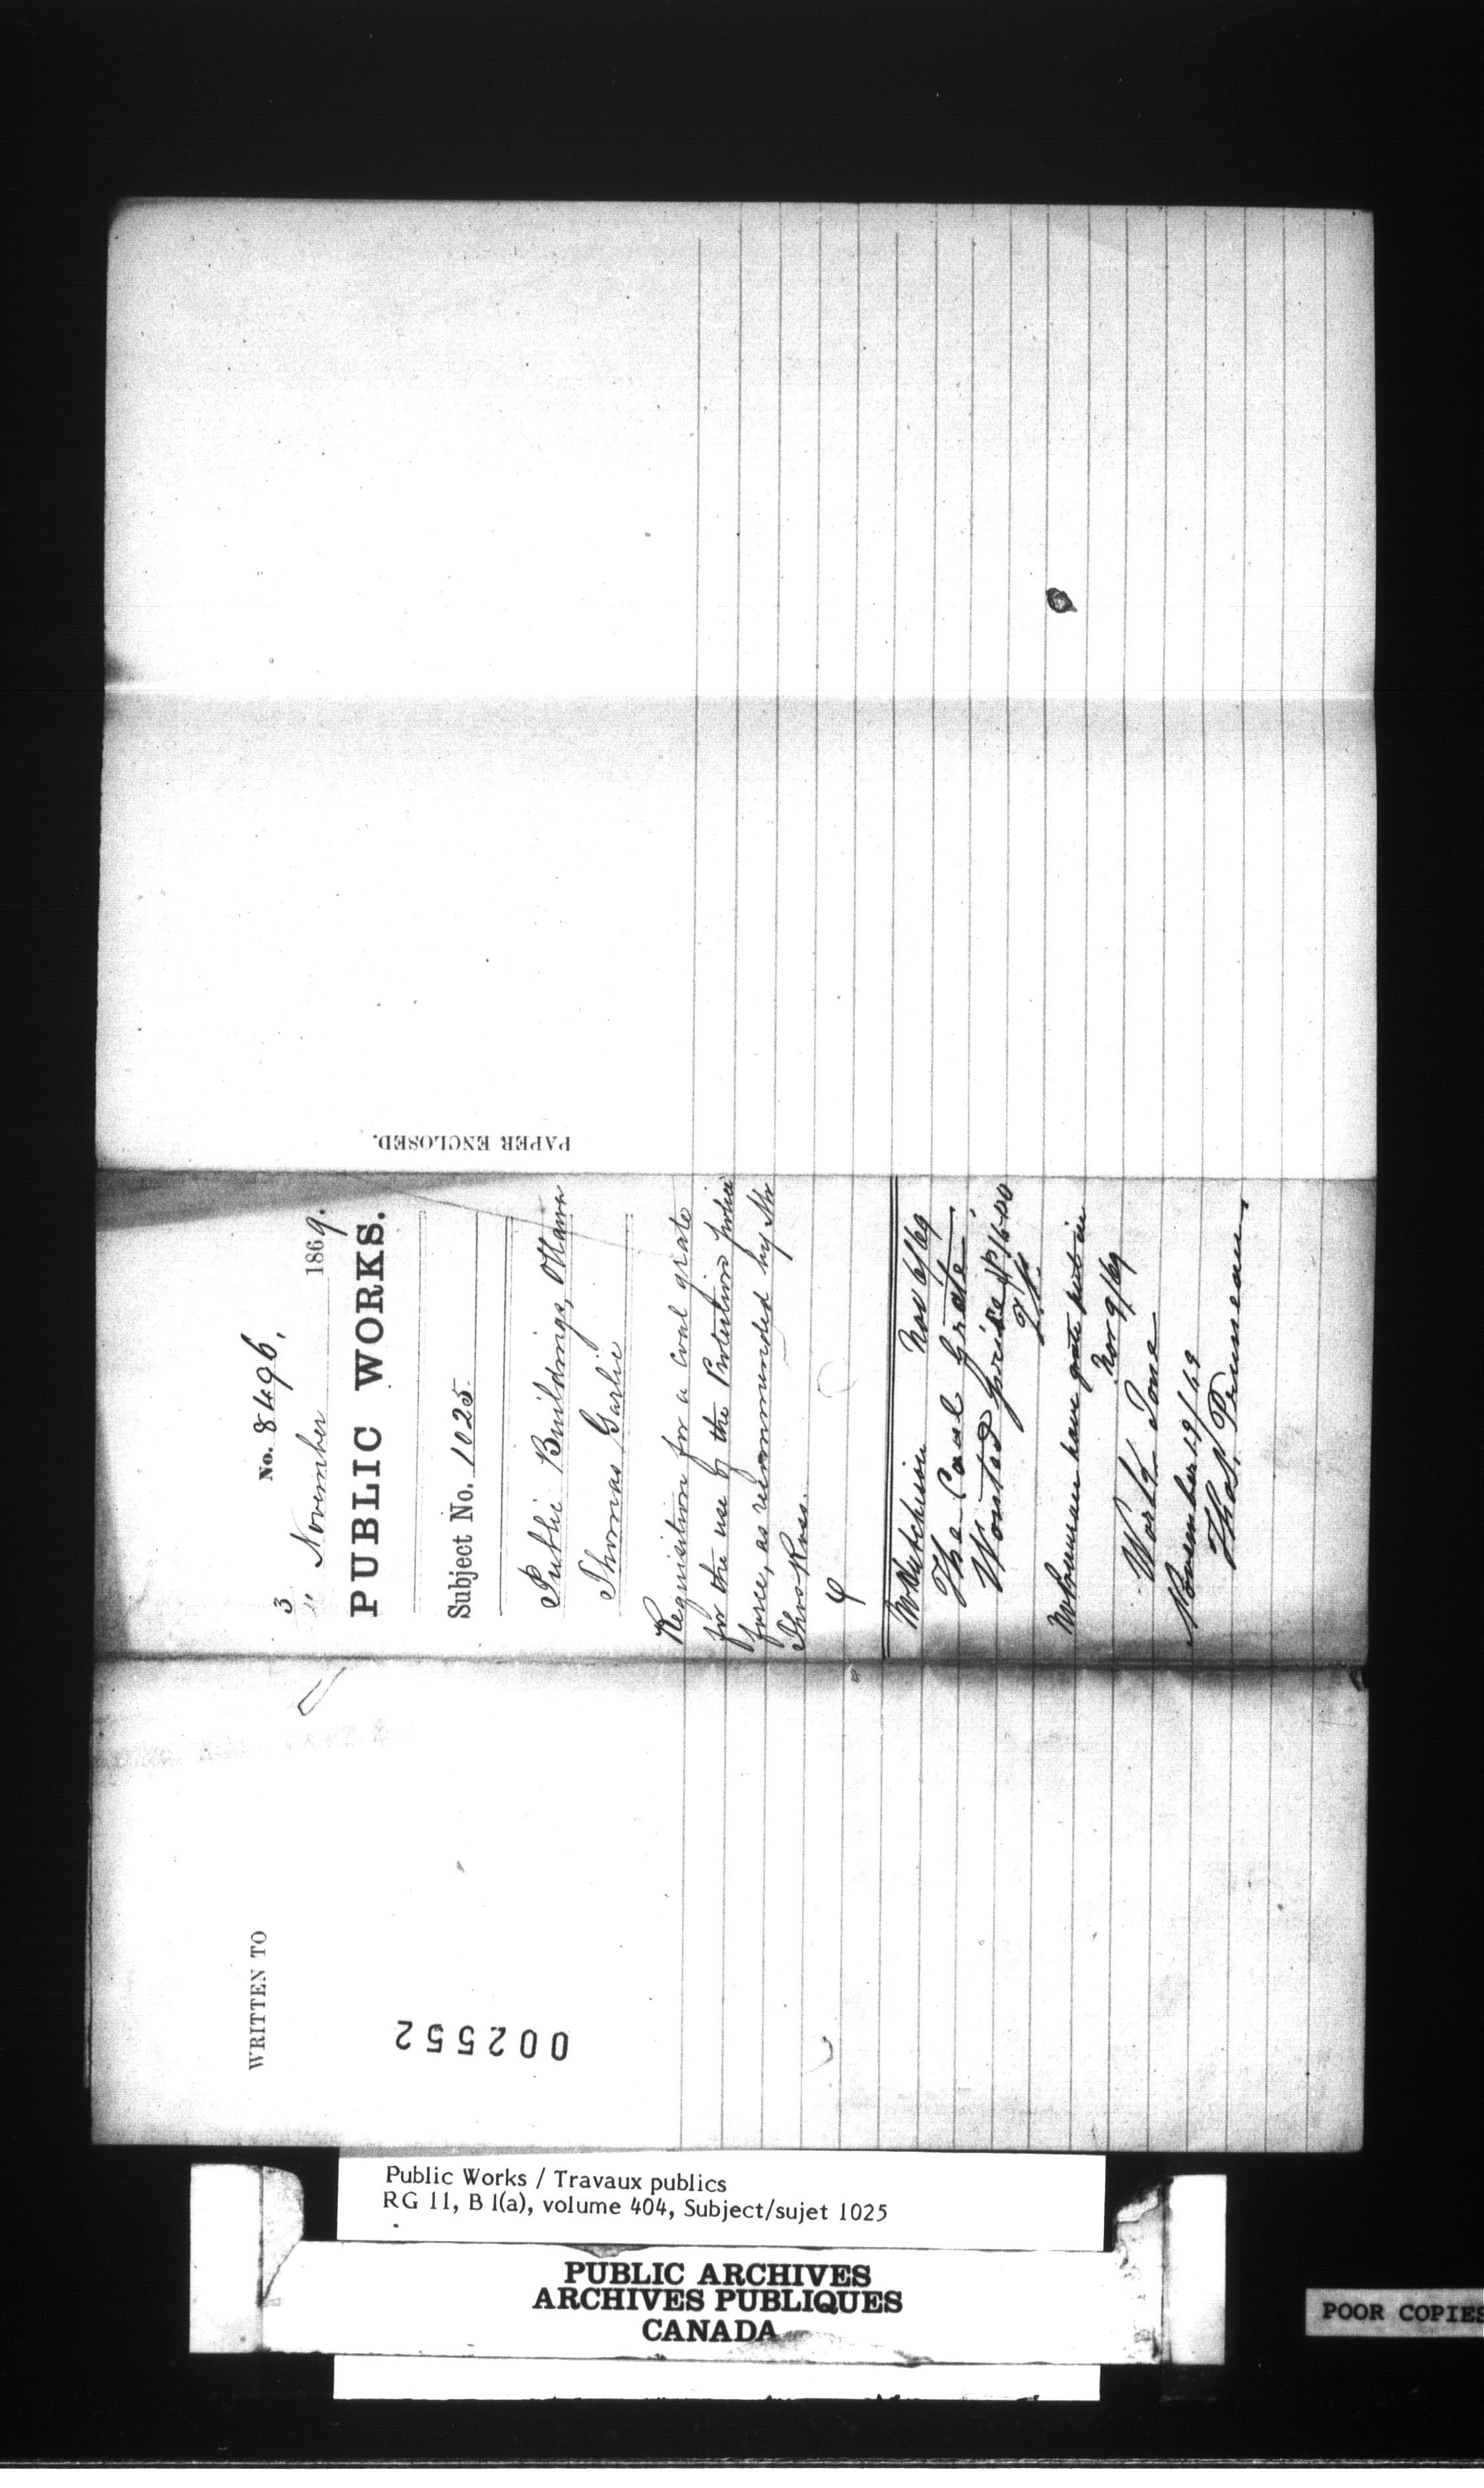 No. 8496.
3
" November 1869.
PUBLIC WORKS.
Subject No. 1025
Public Buildings, Ottawa
Thomas Garlic
Requisition for a coal grate
for the use of the Protection police
force, as recommended by Mr
Thos Ross.
Mr Hutchison Nov 6/69
The Coal Grate
Wanted price $16.00
Mr Penman have grate put in
Nov 9/69
Work Done
November 19/69
Thos. Penman
PAPER ENCLOSED.
WRITTEN TO
002552
Public Works / Travaux publics
RG 11, B 1(a), volume 404, Subject/sujet 1025
PUBLIC ARCHIVES
ARCHIVES PUBLIQUES
CANADA
POOR COPIES